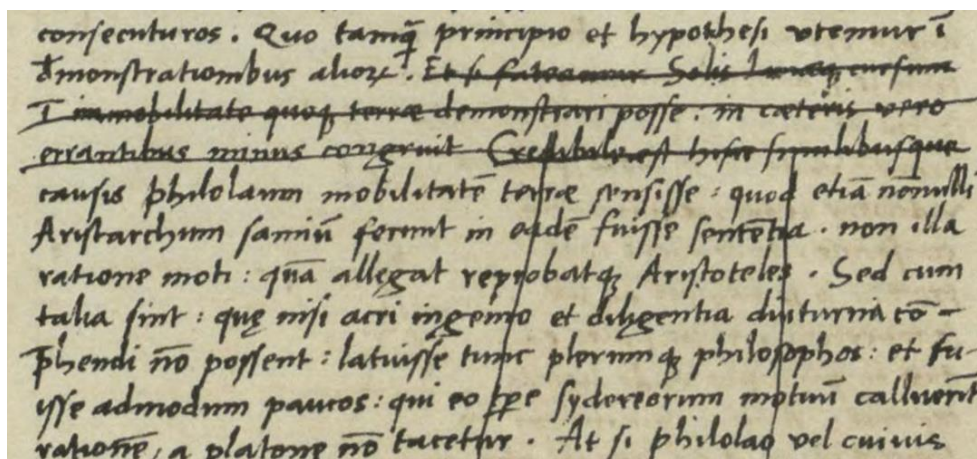 consecuturos. Quo tamq̃ principio et hypothesi vtemur ĩ
d̄monstrationibus alioꝝ. Et si fateamur Solis Lunaeqꝫ cursum
ĩ immobilitate quoqꝫ terræ demonstrari posse: in cæteris vero
errantibus minus congruit Credibile est hisce similibusque
causis philolaum mobilitatē terræ sensisse: quod etiā nōnulli
Aristarchum samiū ferunt in eadē fuisse sententia. non illa
ratione moti: quā allegat reprobatqꝫ Aristoteles. Sed cum
talia sint: quę nisi acri ingenio et diligentia diuturna cō-
p̄hendi nō possent: latuisse tunc plerunqꝫ philosophos: et fu-
isse admodum paucos: qui eo tp̄e sydereorum motuū calluerint
rationē, a platone nō tacetur. At si philolao vel cuiuis